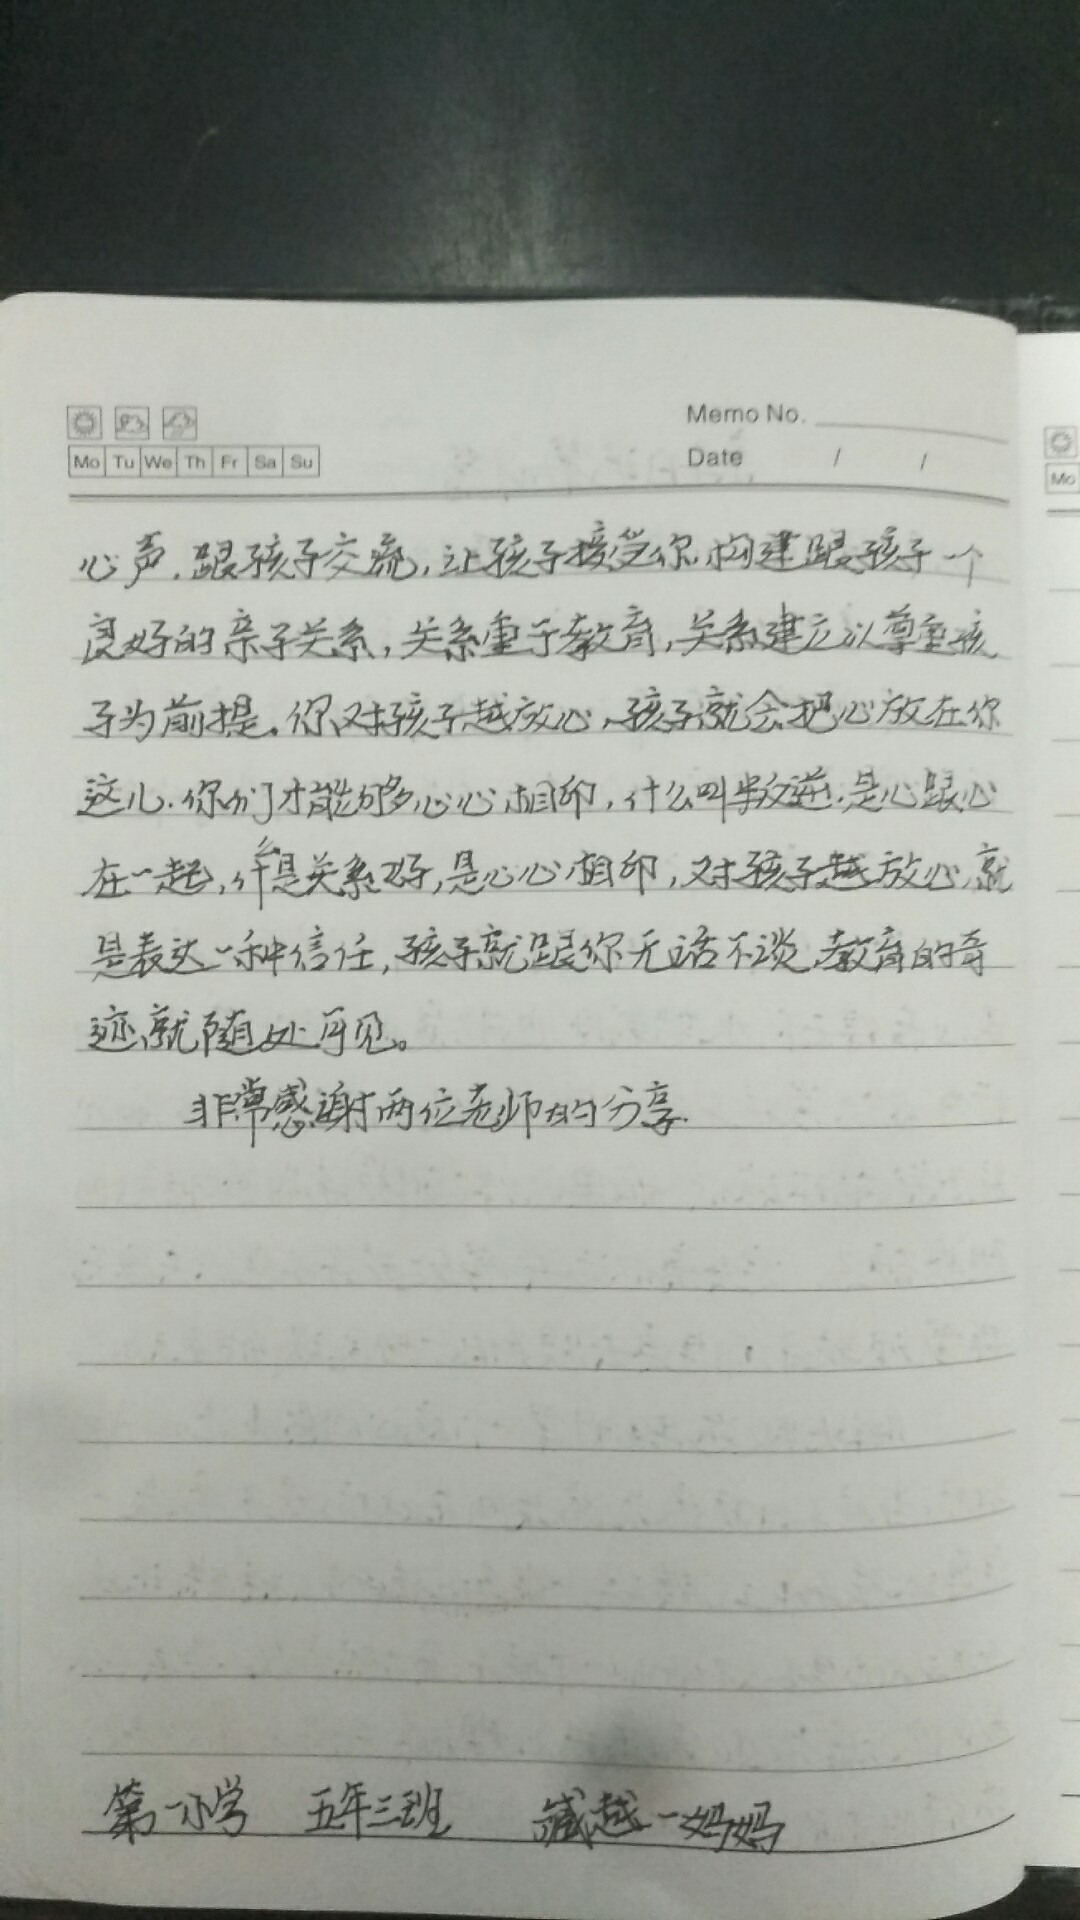 Memo No.
Mo Tu We Th Fr Sa Su
Date / /
Mo
心声，跟孩子交流，让孩子接受你，构建跟孩子一个
良好的亲子关系，关系重于教育，关系建立以尊重孩
子为前提。你对孩子越放心，孩子就会把心放在你
这儿，你们才能够心心相印，什么叫叛逆，是心跟心
在一起，什么是关系好，是心心相印，对孩子越放心，就
是表达一种信任，孩子就跟你无话不谈，教育的奇
迹就随处可见。
非常感谢两位老师的分享.
第一小学 五年三班 臧越一妈妈